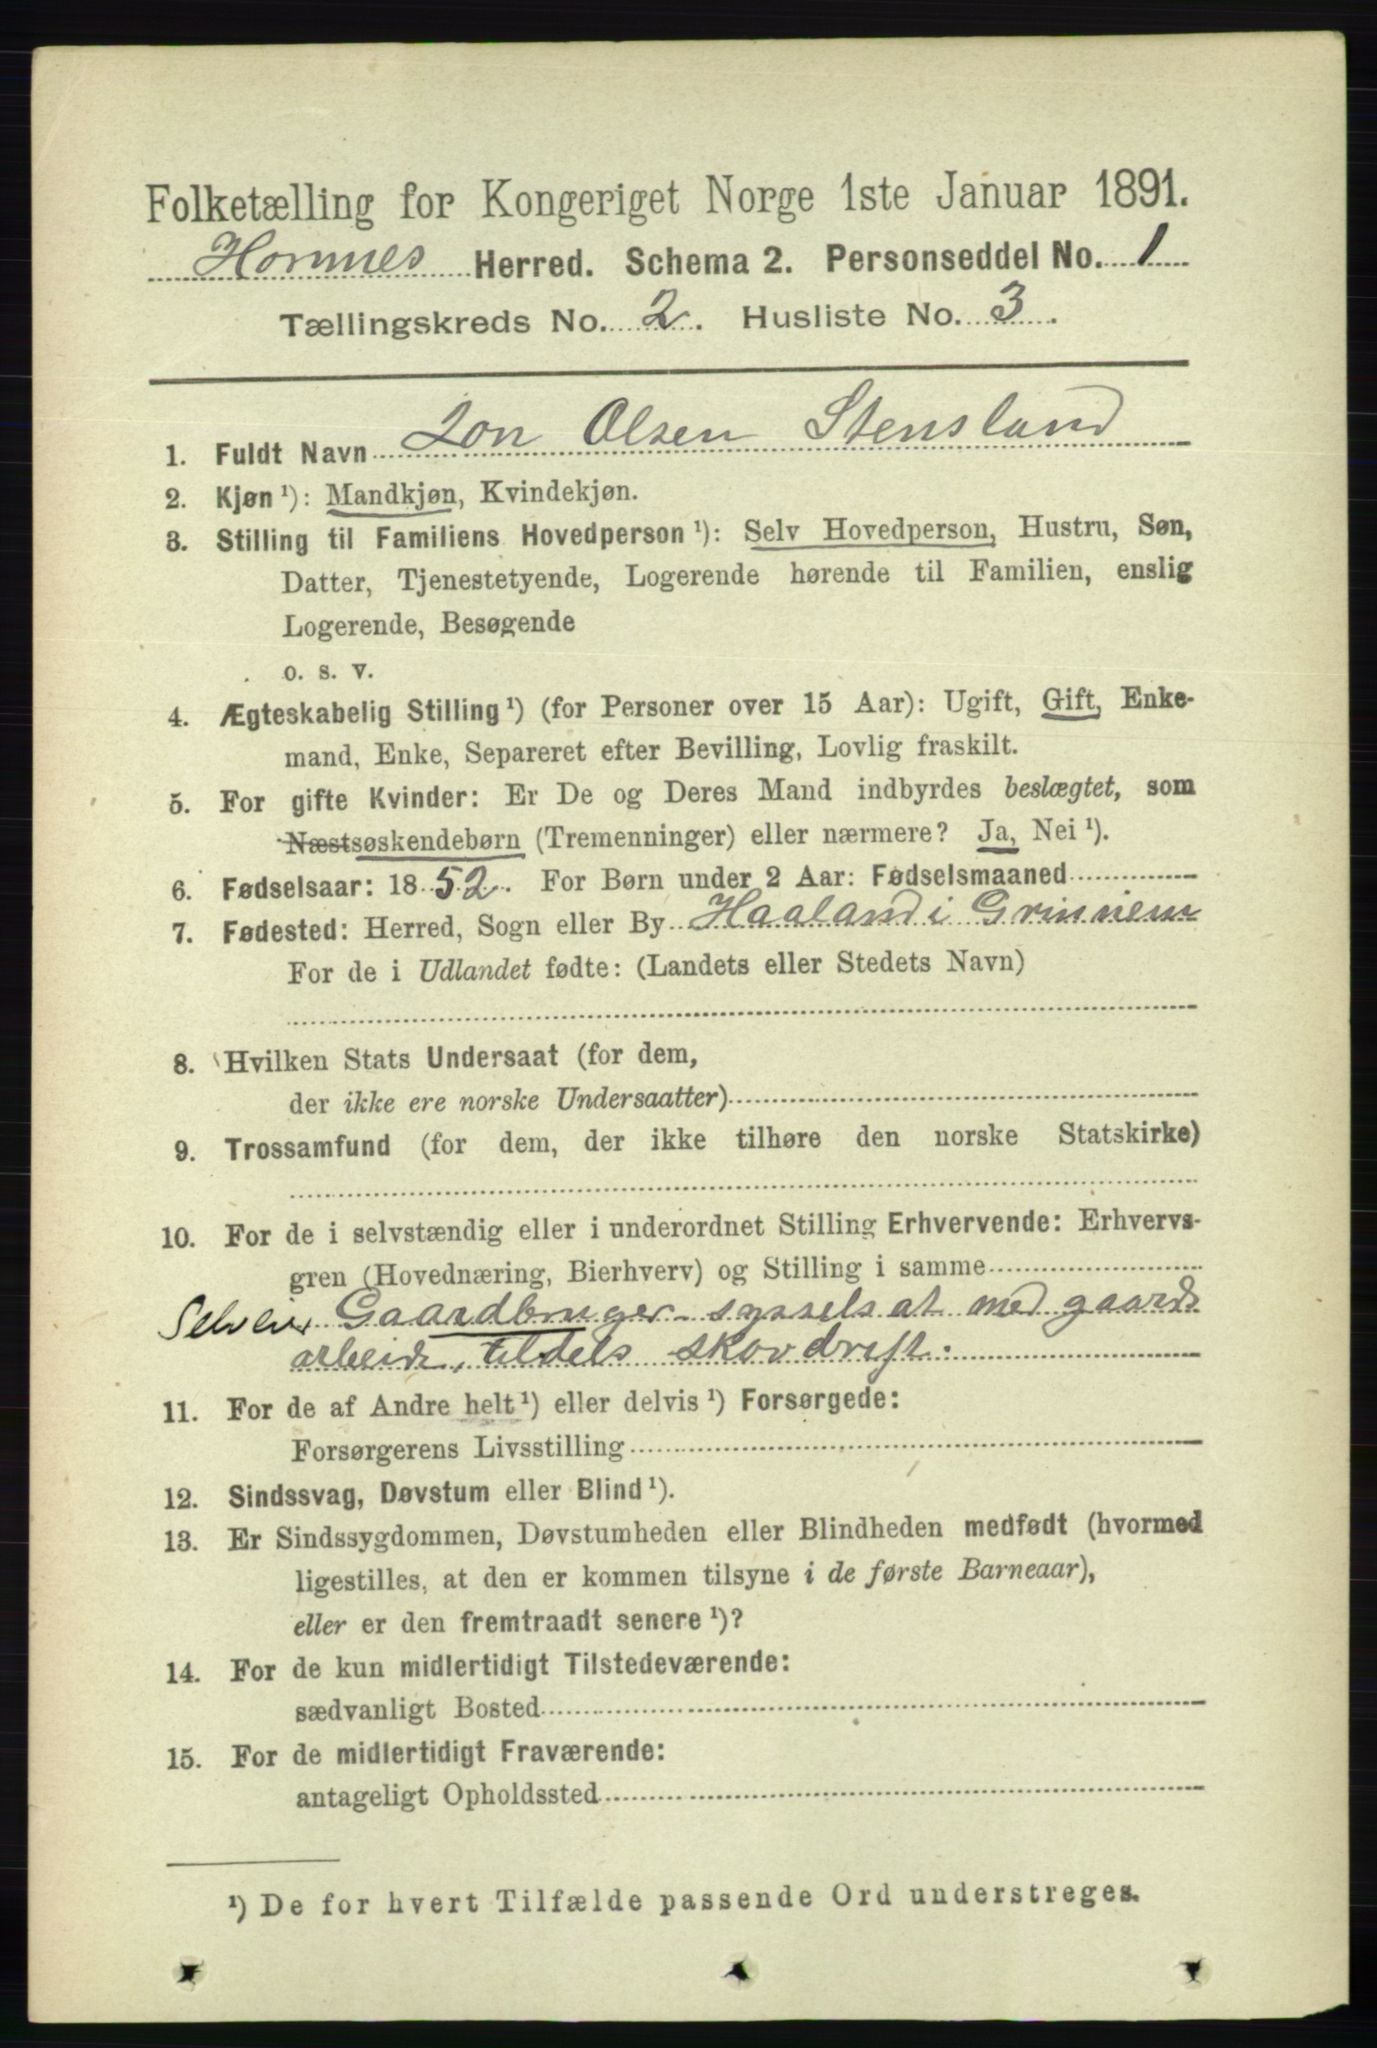 Folketælling for Kongeriget Norge 1ste Januar 1891.
Hornnes Herred. Schema 2. Personseddel No. 1
Tællingskreds No. 2. Husliste No. 3.
1. Fuldt Navn Jon Olsen Stensland
2. Kjøn ¹): Mandkjøn, Kvindekjøn.
3. Stilling til Familiens Hovedperson ¹): Selv Hovedperson, Hustru, Søn,
Datter, Tjenestetyende, Logerende hørende til Familien, enslig
Logerende, Besøgende
o. s. v.
4. Ægteskabelig Stilling ¹) (for Personer over 15 Aar): Ugift, Gift, Enke-
mand, Enke, Separeret efter Bevilling, Lovlig fraskilt.
5. For gifte Kvinder: Er De og Deres Mand indbyrdes beslægtet, som
Næstsøskendebørn (Tremenninger) eller nærmere? Ja, Nei ¹).
6. Fødselsaar: 1852. For Børn under 2 Aar: Fødselsmaaned
7. Fødested: Herred, Sogn eller By Haaland i Grinnem
For de i Udlandet fødte: (Landets eller Stedets Navn)
8. Hvilken Stats Undersaat (for dem,
der ikke ere norske Undersaatter)
9. Trossamfund (for dem, der ikke tilhøre den norske Statskirke)
10. For de i selvstændig eller i underordnet Stilling Erhvervende: Erhvervs-
gren (Hovednæring, Bierhverv) og Stilling i samme
Selveier Gaardbruger - sysselsat med gaards
arbeide, tildels skovdrift.
11. For de af Andre helt ¹) eller delvis ¹) Forsørgede:
Forsørgerens Livsstilling
12. Sindssvag, Døvstum eller Blind ¹).
13. Er Sindssygdommen, Døvstumheden eller Blindheden medfødt (hvormed
ligestilles, at den er kommen tilsyne i de første Barneaar),
eller er den fremtraadt senere ¹)?
14. For de kun midlertidigt Tilstedeværende:
sædvanligt Bosted
15. For de midlertidigt Fraværende:
antageligt Opholdssted
¹) De for hvert Tilfælde passende Ord understreges.